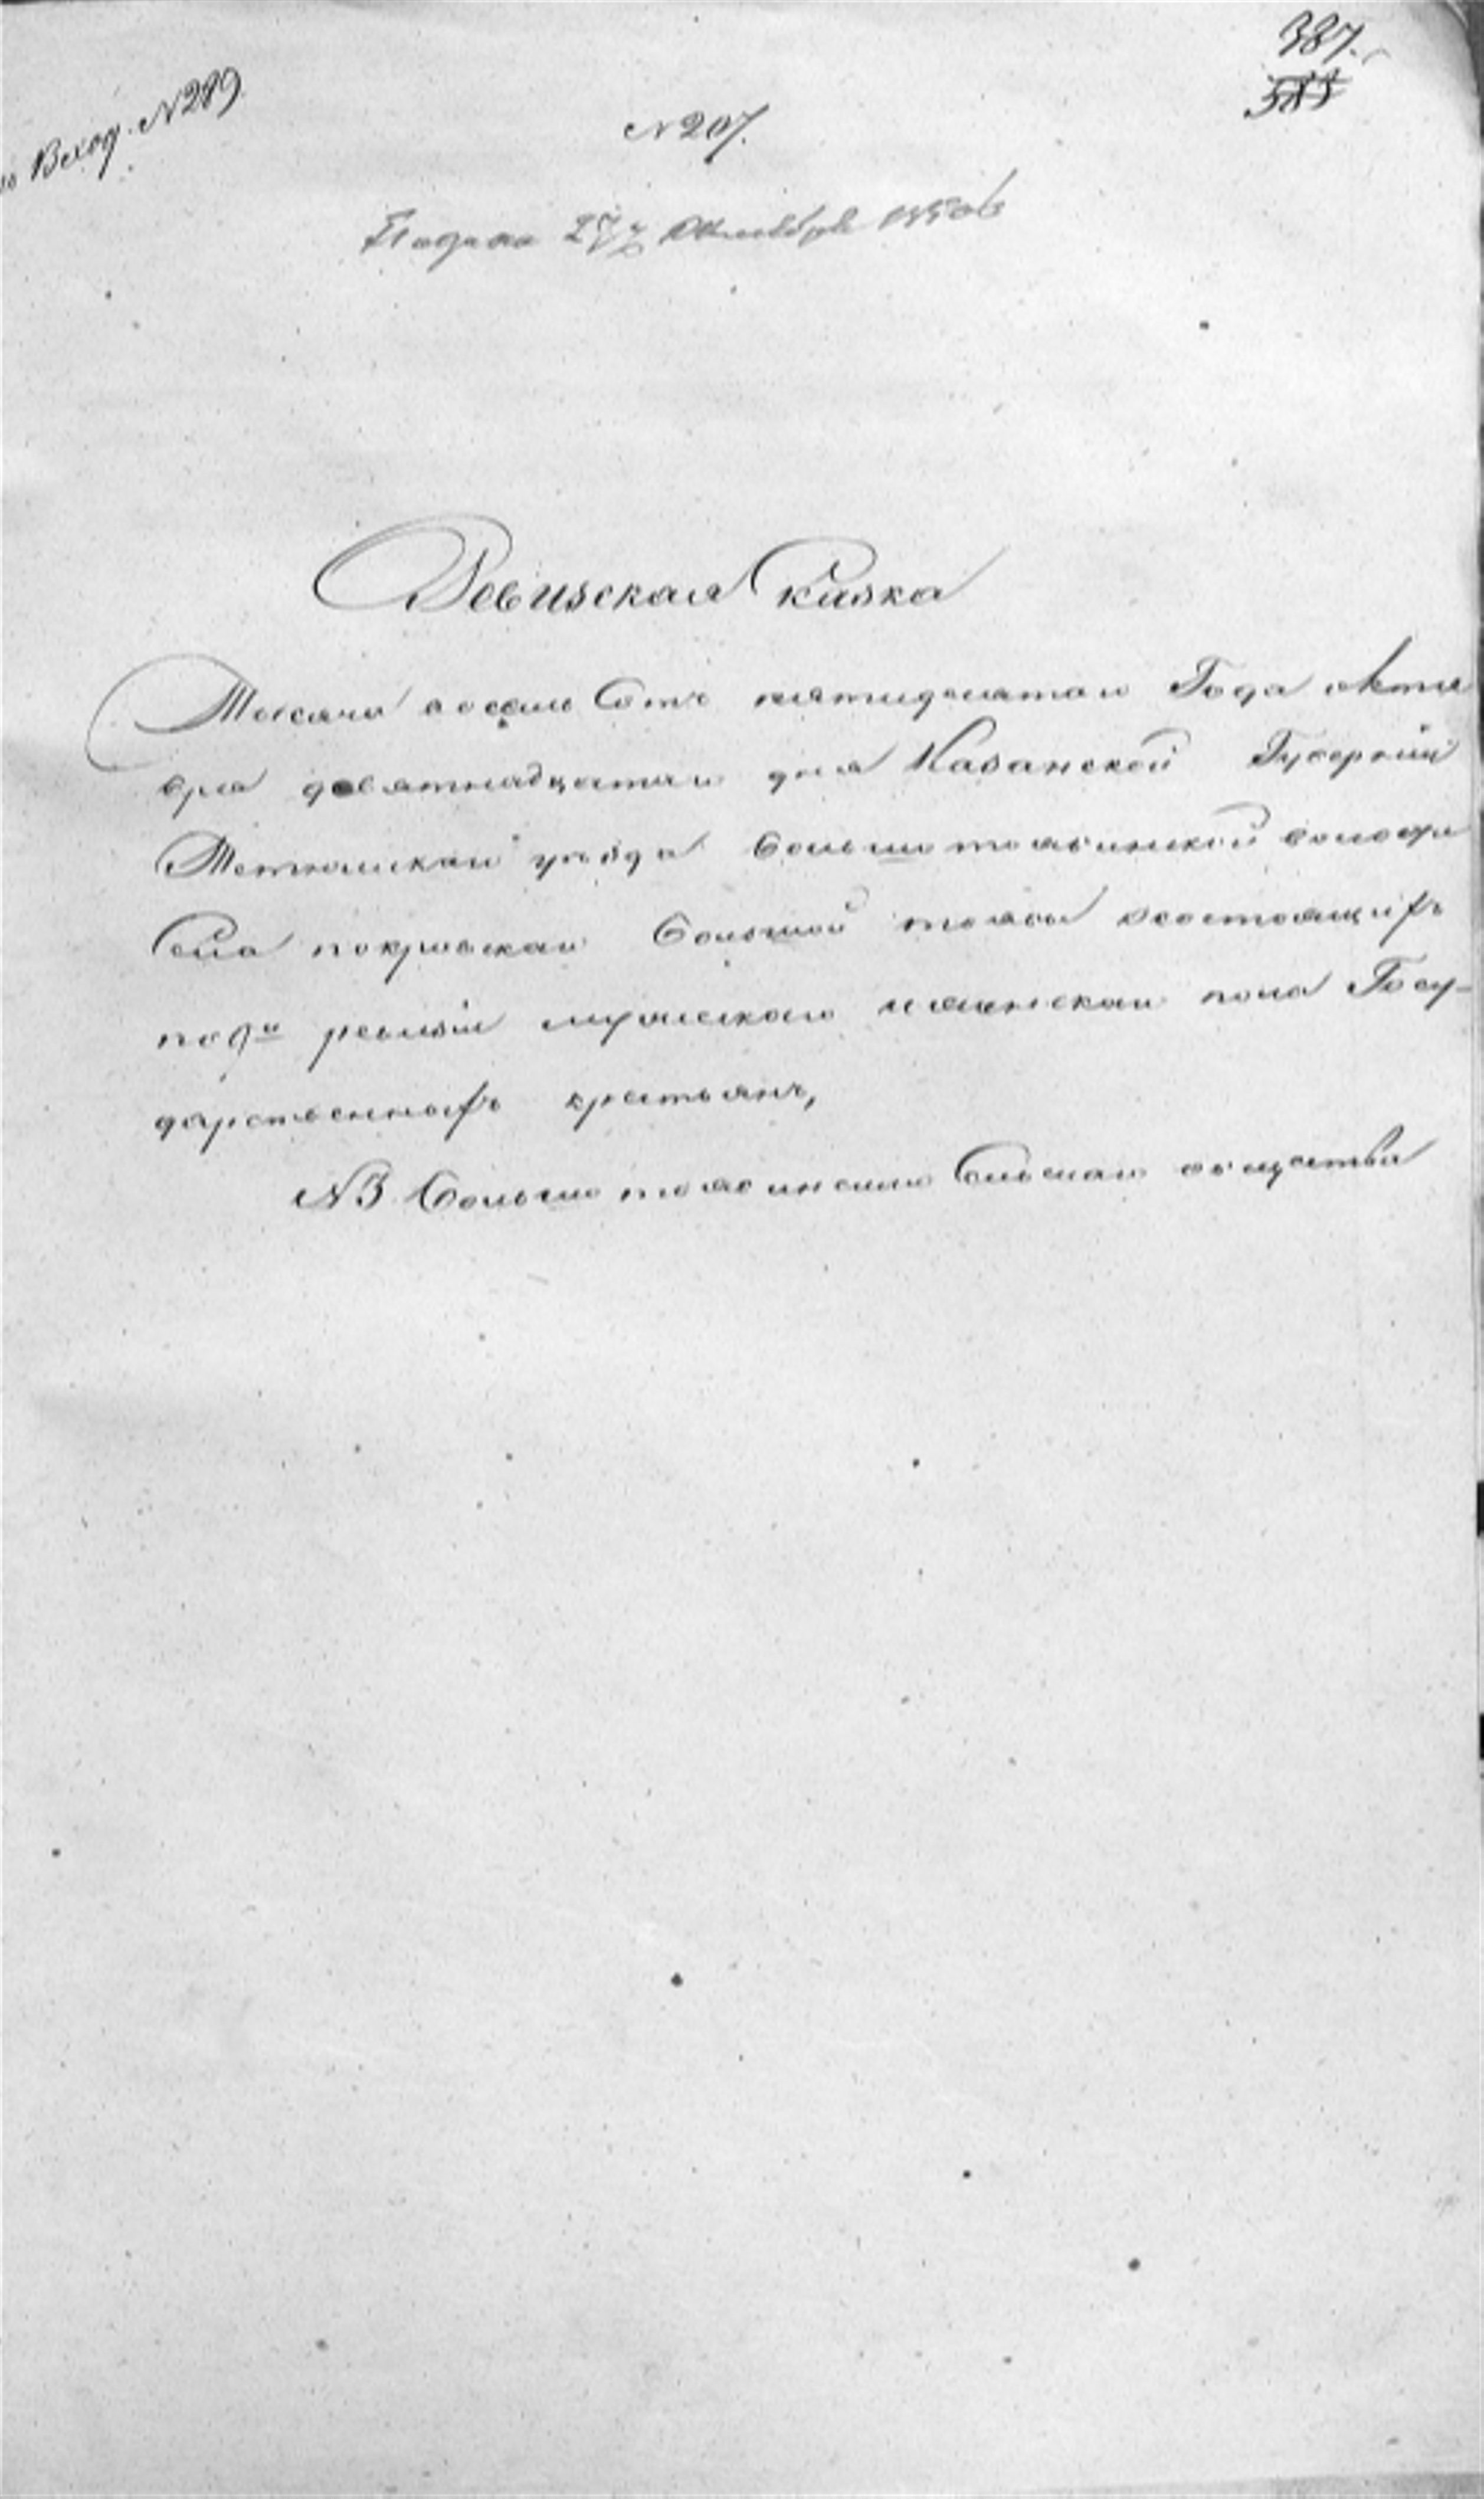 387.
385
по Вход. №289
№207.
Подана 27 Октября 1850
Ревизская Сказка
Тысяча восем Сотъ пятидесятаго Года октя
бря девятнадцатаго дня Казанской Губернии
Тетюшскаго уѣзда больше тоябинской волости
Села покровскаго большой тоябы осостоящихъ
по 9й ревизіи мужескаго и женскаго пола Госу-
дарственныхъ крестьянъ,
№3 больше тоябинскаго Сельскаго общества